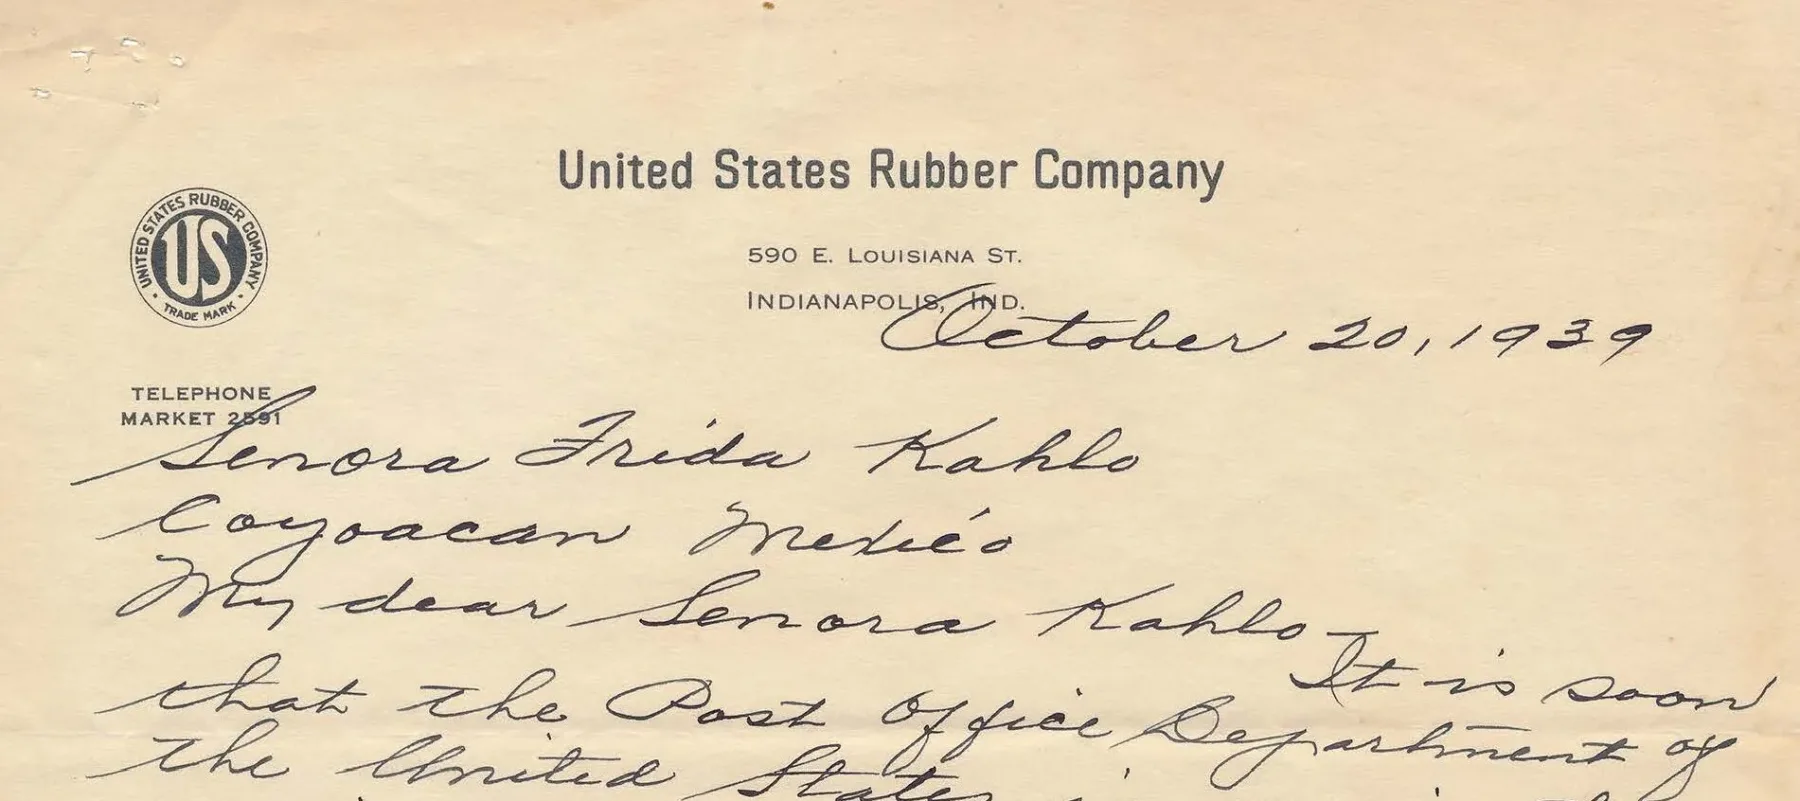 United States Rubber Company
UNITED STATES RUBBER COMPANY
US
TRADE MARK
590 E. LOUISIANA ST.
INDIANAPOLIS, IND.
October 20, 1939
TELEPHONE
MARKET 2591
Senora Frida Kahlo
Coyoacan Mexico
My dear Senora Kahlo—
It is soon
that the Post Office Department of
the United States